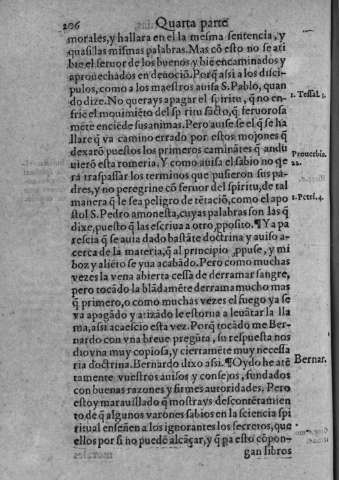 206 Quarta parte
morales, y hallara en el la mesma sentencia, y
quasi las mismas palabras. Mas cō esto no se asi
bie el feruor de los buenos y biē encaminados y
aprouechados en deuociō. Porq̄ assi a los disci-
pulos, como a los maestros auisa S. Pablo, quan
do dize. No querays apagar el spiritu, q̄ no en-
1. Tessal. 5.
frie el mouimiēto del sp̄ritu sācto, q̄ feruorosa
mēte enciēde sus animas. Pero auise se el q̄ se ha
llare q̄ va camino errado por estos mojones q̄
dexarō puestos los primeros caminātes q̄ andu
uierō esta romeria. Y como auisa el sabio no q̄e
Prouerbio.
22.
ra traspassar los terminos que pusieron sus pa-
dres, y no peregrine cō feruor del spiritu, de tal
manera q̄ le sea peligro de tētaciō, como el apo
1. Petri. 4.
stol S. Pedro amonesta, cuyas palabras son las q̄
dixe, puesto q̄ las escriua a otro, pposito. ¶ Ya pa
rescia q̄ se auia dado bastāte doctrina y auiso a-
cerca de la materia, q̄ al principio ppuse, y mi
boz y aliēto se yua acabādo. Pero como muchas
vezes la vena abierta cessa de derramar sangre,
pero tocādo la blādamēte derrama mucho mas
q̄ primero, o como muchas vezes el fuego ya se
va apagādo y atizādo le estorna a leuātar la lla
ma, assi acaescio esta vez. Porq̄ tocādo me Ber-
nardo con vna breue pregūta, su respuesta nos
dio vna muy copiosa, y cierramēte muy necessa
ria doctrina. Bernardo dixo assi. ¶ Oydo he atē
Bernar.
tamente vuestros auisos y consejos, fundados
con buenas razones y firmes autoridades. Pero
estoy marauillado q̄ mostrays descontētamien
to, de q̄ algunos varones sabios en la sciencia spi
ritual enseñen a los ignorantes los secretos, que
ellos por si no puedē alcāçar, y q̄ pa esto cōpon-
gan libros